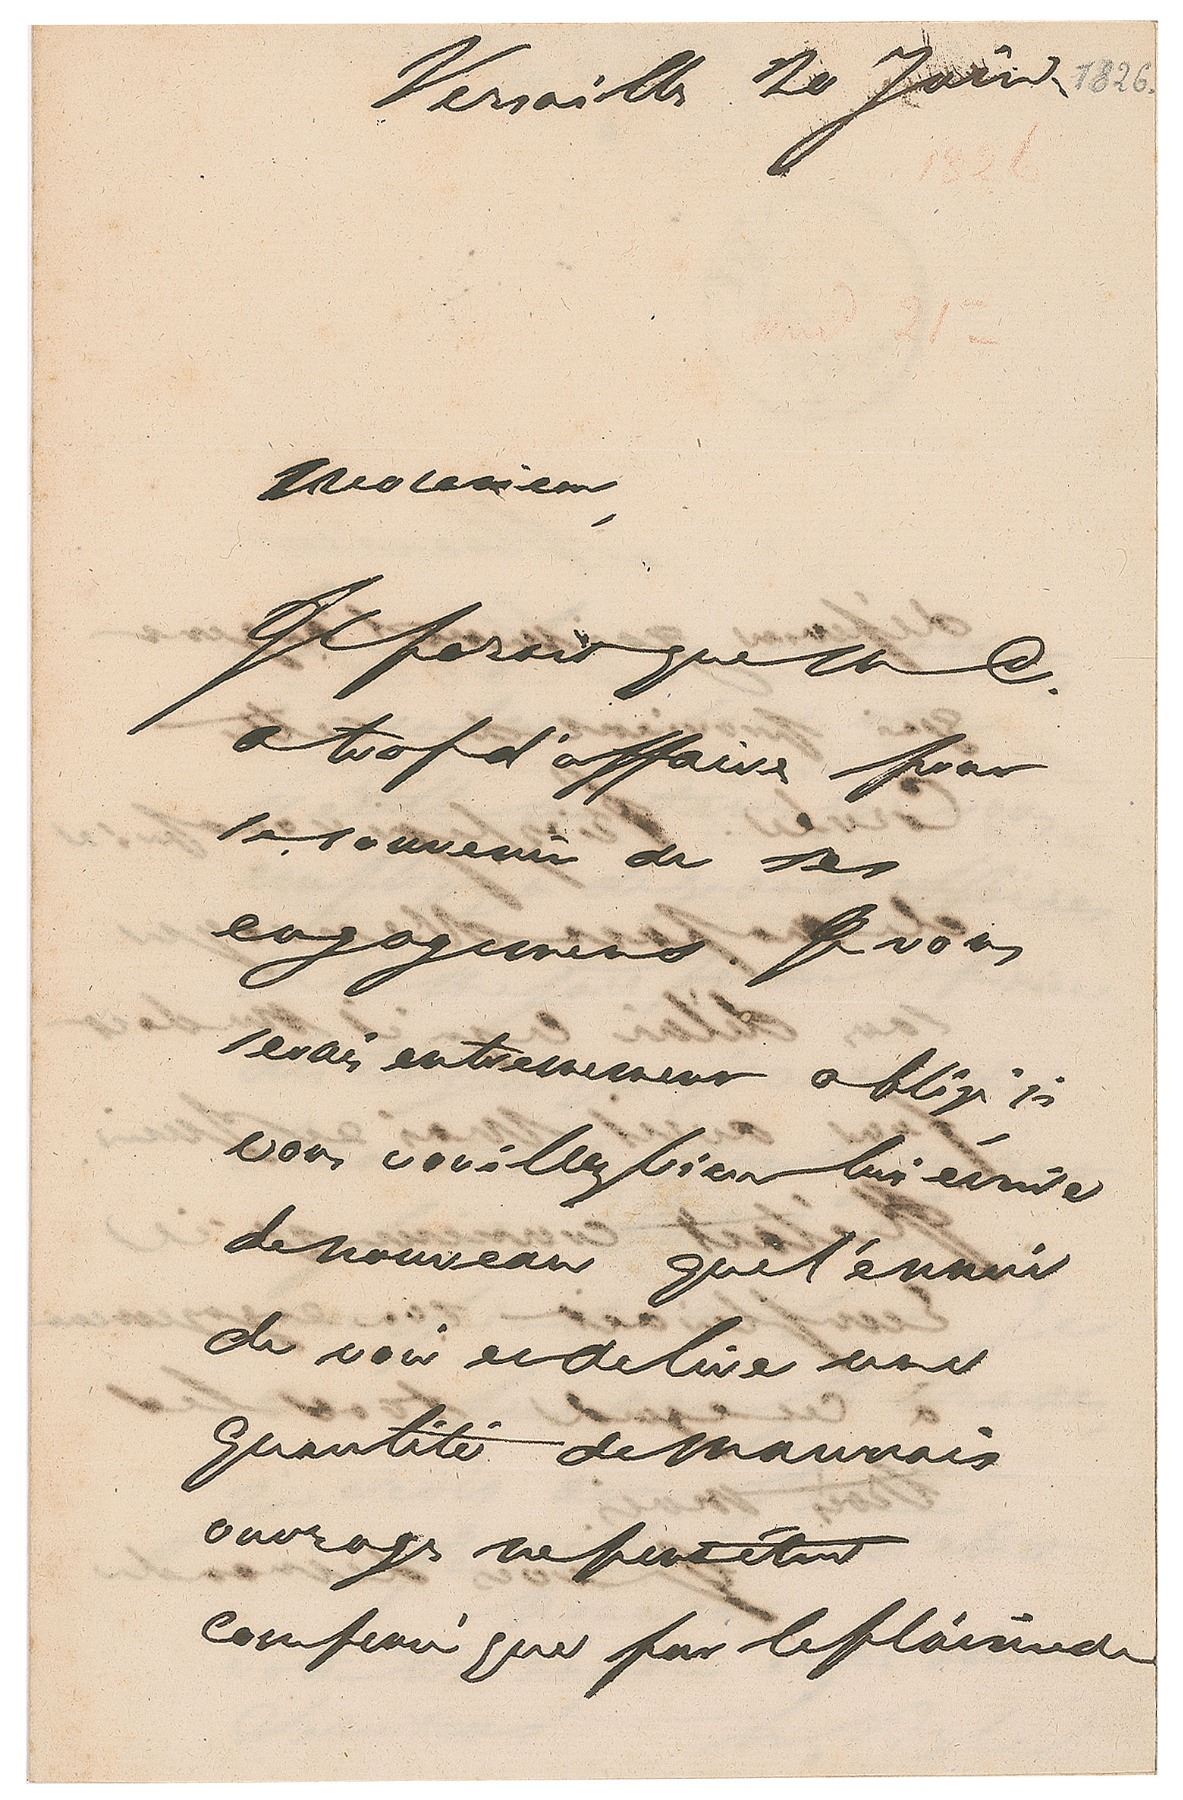 Versailles 20 Juin 1826.
1826
21
Monsieur,
Il paroit que M C.
a trop d'affaires pour
se souvenir de ses
engagemens. Je vous
serais extremement obligé si
vous vouillez bien lui écrire
de nouveau que l'ennui
de voir et de lire une
quantité de mauvais
ouvrages ne peut être
compensé que par le plaisir de